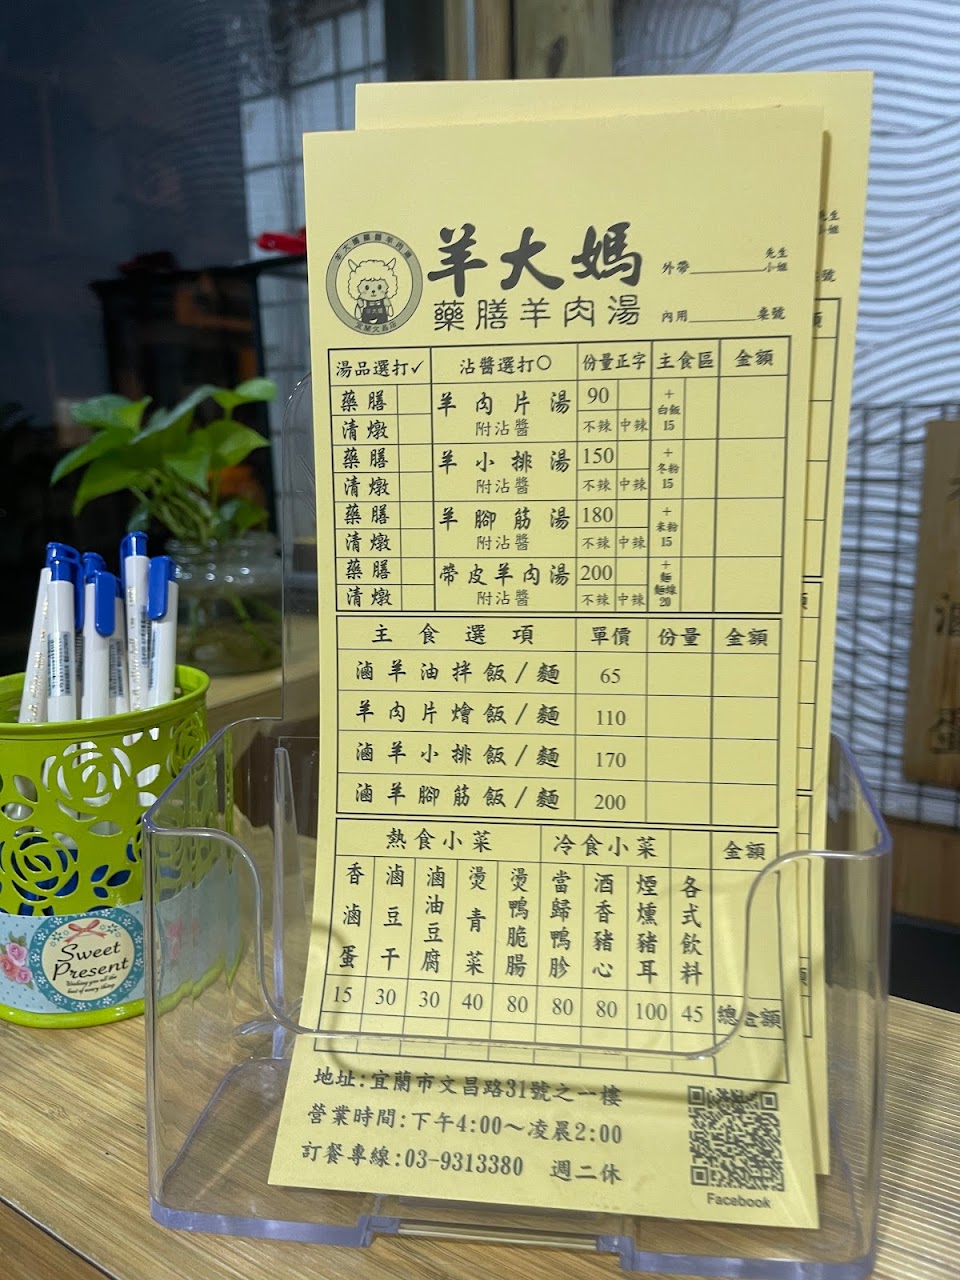 羊大媽
藥膳羊肉湯
外帶 先生 小姐
內用 桌號
湯品選打✓ 沾醬選打○ 份量正字 主食區 金額
藥膳 羊肉片湯 90 +白飯15
清燉 附沾醬 不辣 中辣
藥膳 羊小排湯 150 +冬粉15
清燉 附沾醬 不辣 中辣
藥膳 羊腳筋湯 180 +米粉15
清燉 附沾醬 不辣 中辣
藥膳 帶皮羊肉湯 200 +麵 麵線20
清燉 附沾醬 不辣 中辣
主食選項 單價 份量 金額
滷羊油拌飯/麵 65
羊肉片燴飯/麵 110
滷羊小排飯/麵 170
滷羊腳筋飯/麵 200
熱食小菜 冷食小菜 金額
香滷蛋 15
滷豆干 30
滷油豆腐 30
燙青菜 40
燙鴨脆腸 80
當歸鴨胗 80
酒香豬心 80
煙燻豬耳 100
各式飲料 45
總金額
地址:宜蘭市文昌路31號之一樓
營業時間:下午4:00～凌晨2:00
訂餐專線:03-9313380 週二休
Facebook
Sweet
Present
Wishing you all the
best of every thing